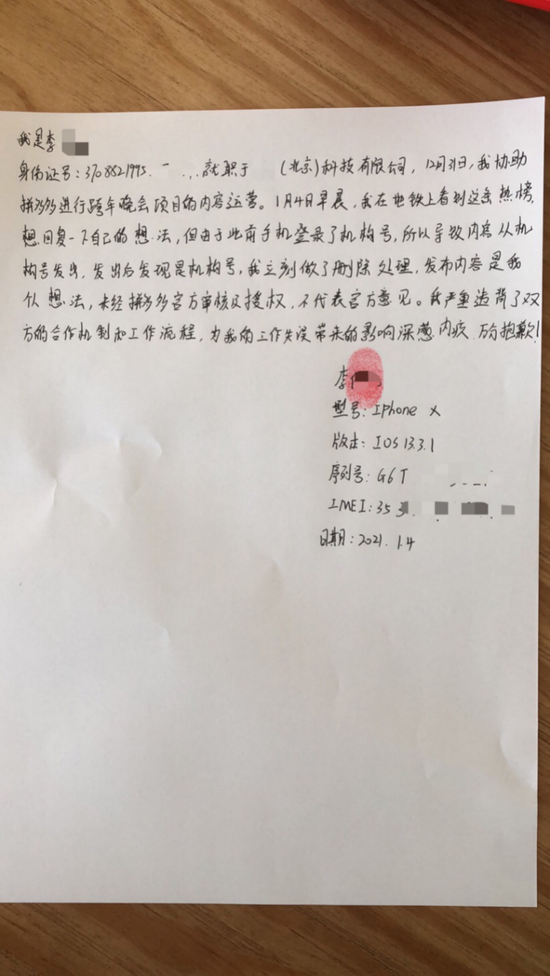 我是李
身份证号:3708821995. 就职于 (北京)科技有限公司,12月31日,我协助
拼多多进行跨年晚会项目的内容运营。1月4日早晨,我在地铁上看到这条热榜,
想回复一下自己的想法,但由于此前手机登录了机构号,所以导致内容从机
构号发出,发出后发现是机构号,我立刻做了删除处理,发布内容是我
个人想法,未经拼多多官方审核及授权,不代表官方意见。我严重违背了双
方的合作机制和工作流程,为我的工作失误带来的影响深感内疚,万分抱歉!
李
型号:Iphone X
版本:IOS 13.3.1
序列号:G6T
IMEI:35
日期:2021.1.4